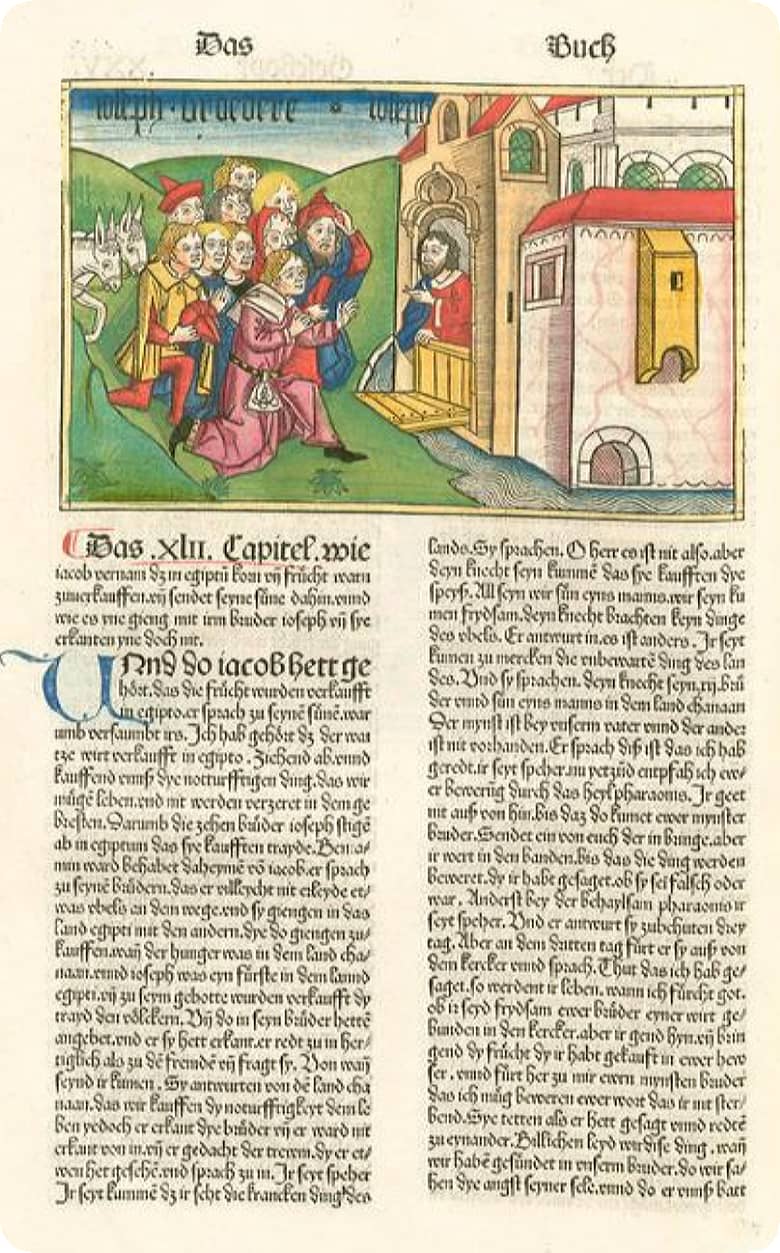 Das Buch
ioseph · bruedere * ioseph
Das .XlII. Capitel. wie
iacob vernam dz in egiptū korn vñ frücht warn
zuuerkauffen.vñ sendet seyne süne dahin.vnnd
wie es yne gieng mit irm bruder ioseph vñ sye
erkanten yne doch nit.
UNnd do iacob hett ge
hört.das die frücht wurden verkaufft
in egipto.er sprach zu seynē sünē.war
umb versaumbt irs. Ich hab gehört dz der wai
tze wirt verkaufft in egipto . Ziehend ab.vnnd
kauffend vnnß dye notturfftigen ding.das wir
mügē leben.vnd nit werden verzeret in dem ge
bresten. Darumb die zehen brüder ioseph stigē
ab in egiptum das sye kaufften trayde. Benia/
min ward behabet daheymē vō iacob.er sprach
zu seynē brüdern.das er villeycht nit erleyde et/
was vbels an dem wege.vnd sy giengen in das
land egipti mit den andern.dye do giengen zu/
kauffen.wañ der hunger was in dem land cha/
naan.vnnd ioseph was eyn fürste in dem lannd
egipti.vñ zu seym gebotte wurden verkaufft dy
trayd den völckern. Vñ do in seyn brüder hettē
angebet.vnd er sy hett erkant.er redt zu in her/
tiglich als zu dē fremdē vñ fragt sy. Von wañ
seynd ir kumen . Sy antwurten von dē land cha
naan.das wir kauffen dy noturfftigkeyt dem le
ben yedoch er erkant dye brüder vñ er ward nit
erkant von in.vñ er gedacht der trewm.dy er et/
wen het gesehē.vnd sprach zu in. Ir seyt speher
Ir seyt kummē dz ir seht die krancken ding des
lands. Sy sprachen. O herr es ist nit also.aber
deyn knecht seyn kummē das sye kaufften dye
speyß. All seyn wir sün eyns manns.wir seyn ku
men frydsam.deyn knecht brachten keyn dinge
des vbels. Er antwurt in.es ist anders . Ir seyt
kumen zu mercken die vnbewartē ding des lan
des. Vnd sy sprachen. deyn knecht seyn.xij.brü
der vnnd sün eyns manns in dem land chanaan
Der mynst ist bey vnserm vater vnnd der ander
ist nit vorhanden. Er sprach diß ist das ich hab
geredt.ir seyt speher.nu yetzūd entpfah ich ew/
er bewerūg durch das heyl pharaonis. Ir geet
nit auß von hin.bis daz do kumet ewer mynster
bruder. Sendet ein von euch der in bringe.aber
ir wert in den banden.bis das die ding werden
beweret.dy ir habt gesaget.ob sy sei falsch oder
war . Anderst bey der behaylsam pharaonis ir
seyt speher. Vnd er antwurt sy zubehüten drey
tag. Aber an dem dritten tag fürt er sy auß von
dem kercker vnnd sprach. Thut das ich hab ge/
saget.so werdent ir leben. wann ich fürcht got.
ob ir seyd frydsam ewer brüder eyner wirt ge/
bunden in den kercker.aber ir gend hyn.vñ brin
gend dy frücht dy ir habt gekaufft in ewer hew
ser . vnnd fürt her zu mir ewrn mynsten bruder
das ich müg beweren ewer wort das ir nit ster/
bend. Sye tetten als er hett gesagt vnnd redtē
zu eynander. Billichen leyd wir dise ding . wañ
wir habē gesündet in vnserm bruder. do wir sa/
hen dye angst seyner sele.vnnd do er vnnß batt